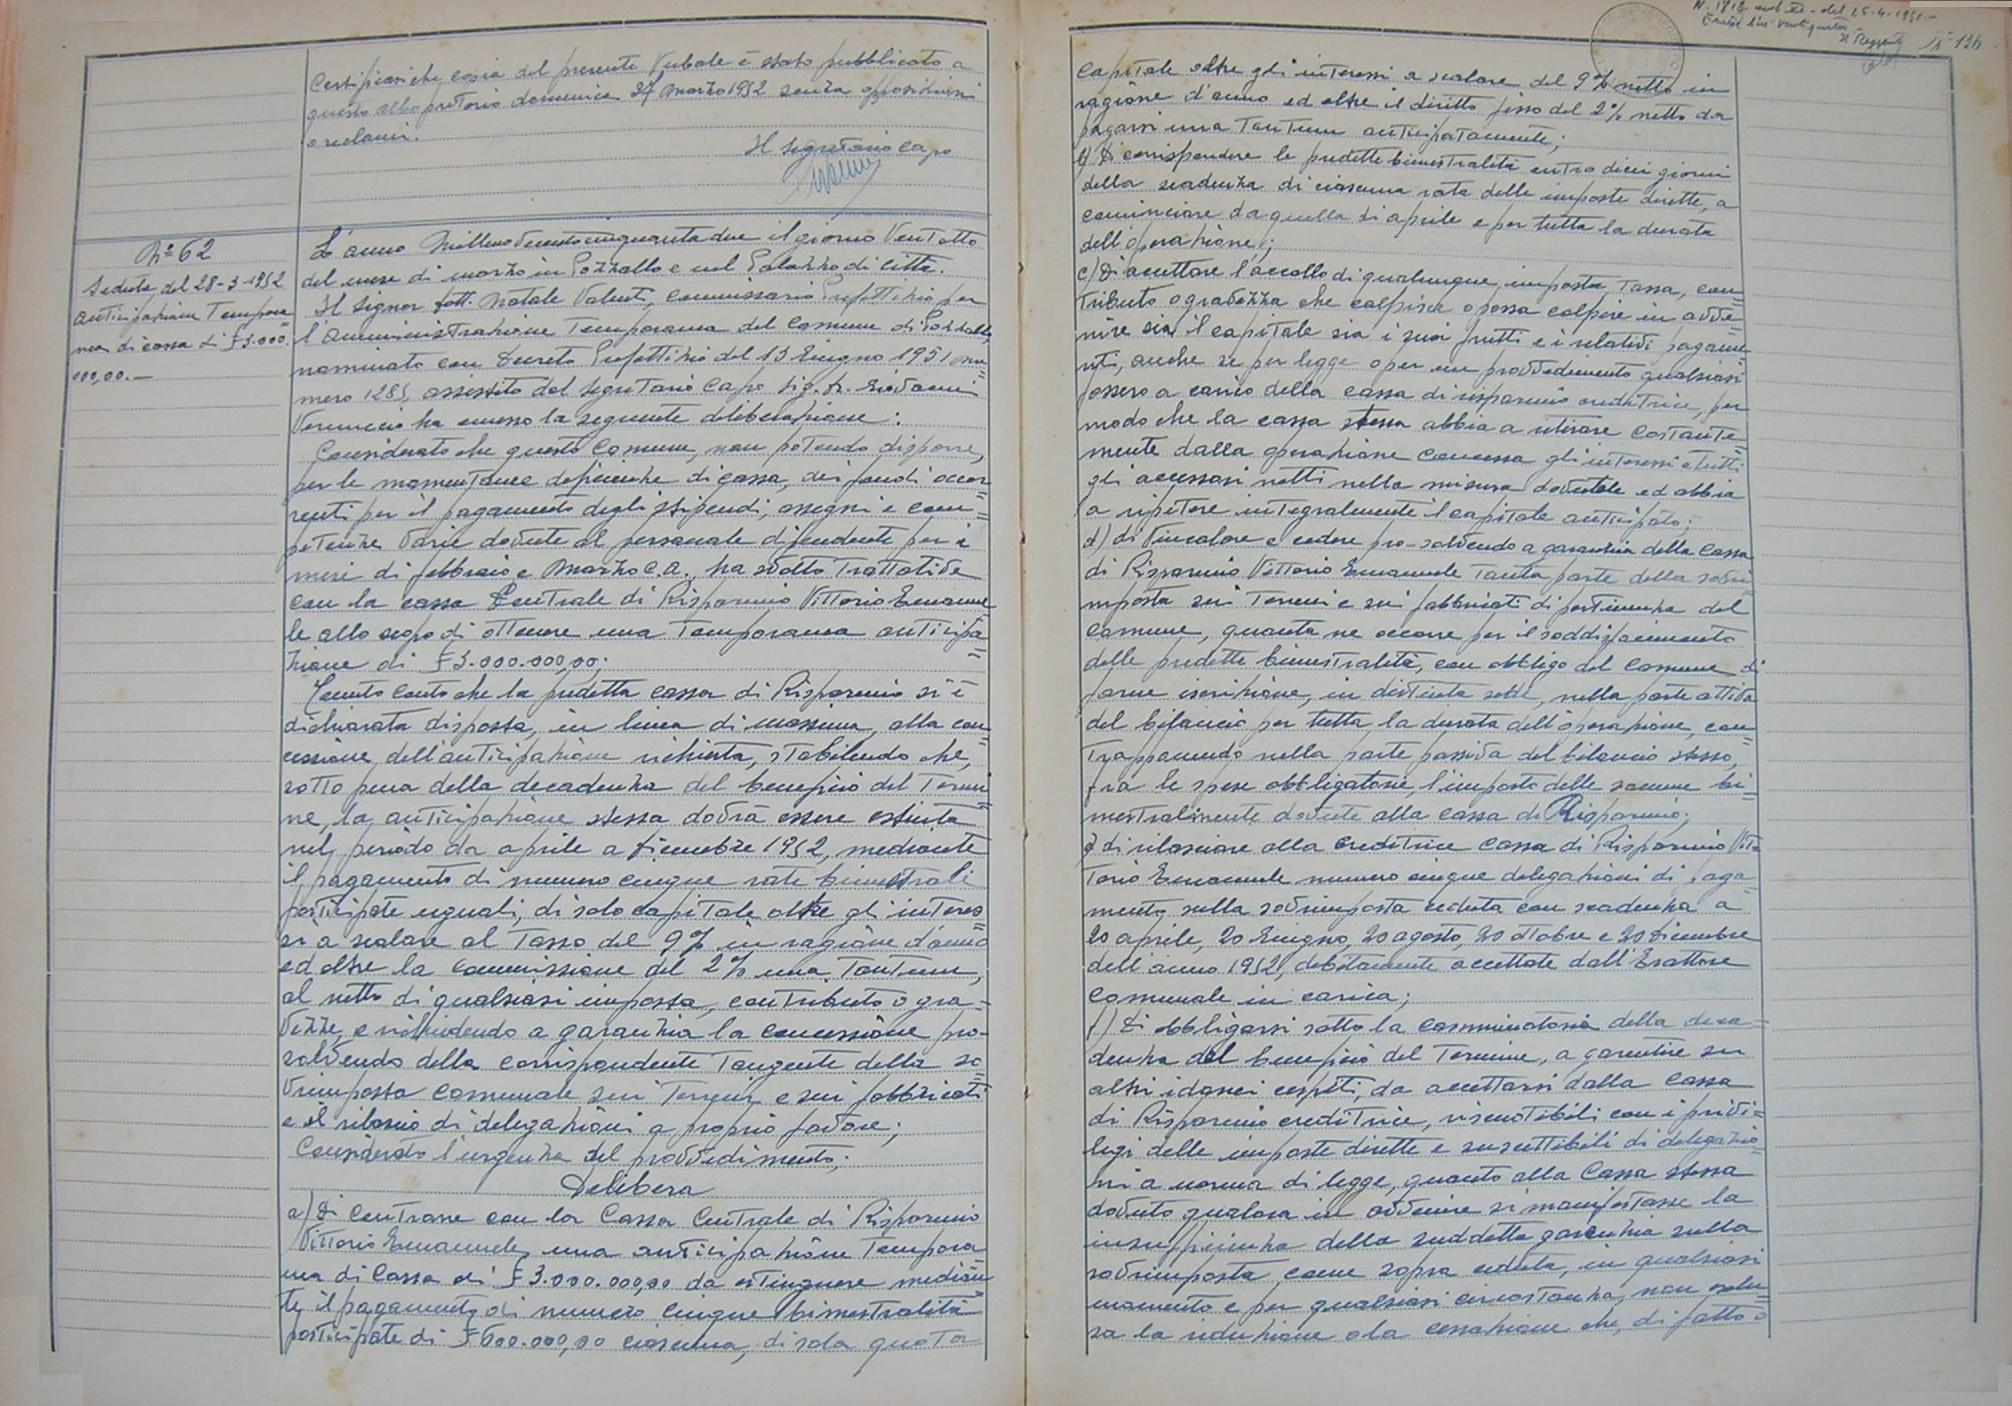 Certificasi che copia del presente Verbale è stato pubblicato a
questo albo pretorio domenica 27 marzo 1952 senza opposizioni
o reclami.
Il Segretario Capo
Nº 62
Seduta del 28-3-1952
anticipazione Tempora=
nea di cassa di £3.000.
000,00.—
L'anno Millenovecentocinquantadue il giorno Ventotto
del mese di marzo in Pozzallo e nel Palazzo di Città.
Il Signor dott. Natale Valenti, Commissario Prefettizio per
l'amministrazione Temporanea del Comune di Pozzallo,
nominato con Decreto Prefettizio del 13 Giugno 1951 nu=
mero 1285, assistito dal Segretario Capo sig.
ha emesso la seguente deliberazione:
Considerato che questo Comune, non potendo disporre,
per le momentanee deficienze di cassa, dei fondi occor=
renti per il pagamento degli stipendi, assegni e com=
petenze varie dovute al personale dipendente per i
mesi di febbraio e Marzo c.a., ha svolto Trattative
con la cassa Centrale di Risparmio Vittorio Emanue
le allo scopo di ottenere una Temporanea anticipa=
zione di £3.000.000,00;
Tenuto conto che la predetta cassa di Risparmio si è
dichiarata disposta, in linea di massima, alla con=
cessione dell'anticipazione richiesta, stabilendo che,
sotto pena della decadenza del beneficio del Termi=
ne, la anticipazione stessa dovrà essere estinta
nel periodo da aprile a dicembre 1952, mediante
il pagamento di numero cinque rate bimestrali
posticipate uguali, di solo capitale oltre gli interes=
si a scalare al Tasso del 9% in ragione d'anno
ed oltre la commissione del 2% una Tantum,
al netto di qualsiasi imposta, contributo o gra=
vezze, e richiedendo a garanzia la concessione pro-
solvendo della corrispondente Tangente della so=
vrimposta comunale sui Terreni e sui fabbricati
e il rilascio di delegazioni a proprio favore;
Considerato l'urgenza del provvedimento;
Delibera
a) Di Contrarre con la Cassa Centrale di Risparmio
Vittorio Emanuele, una anticipazione Tempora=
nea di Cassa di £3.000.000,00 da estinguere median
te il pagamento di numero cinque bimestralità
posticipate di £600.000,00 ciascuna, di sola quota
Nº 134
capitale oltre gli interessi a scalare del 9% netto in
ragione d'anno ed oltre il diritto fisso del 2% netto da
pagarsi una Tantum anticipatamente;
b) Di corrispondere le predette bimestralità entro dieci giorni
della scadenza di ciascuna rata delle imposte dirette, a
cominciare da quella di aprile e per tutta la durata
dell'operazione;
c) Di accettare l'accollo di qualunque imposta, tassa, con=
tributo o gravezza che colpisca o possa colpire in avve=
nire sia il capitale sia i suoi frutti e i relativi pagame
nti, anche se per legge o per un provvedimento qualsiasi
fossero a carico della cassa di risparmio creditrice, per
modo che la cassa stessa abbia a ritirare costante=
mente dalla operazione concessa gli interessi e tutti
gli accessori netti nella misura dovutale ed abbia
a ripetere integralmente il capitale anticipato;
d) di Vincolare e cedere pro-solvendo a garanzia della Cassa
di Risparmio Vittorio Emanuele tanta parte della sovri
mposta sui Terreni e sui fabbricati di pertinenza del
comune, quanta ne occorre per il soddisfacimento
delle predette bimestralità, con obbligo del comune di
farne iscrizione, in distinta sede, nella parte attiva
del bilancio per tutta la durata dell'operazione, con=
trapponendo nella parte passiva del bilancio stesso,
fra le spese obbligatorie, l'importo delle somme bi=
mestralmente dovute alla cassa di Risparmio;
e) di rilasciare alla creditrice Cassa di Risparmio Vit=
torio Emanuele numero cinque delegazioni di paga=
mento sulla sovrimposta ceduta con scadenza a
20 aprile, 20 Giugno, 20 agosto, 20 ottobre e 20 dicembre
dell'anno 1952, debitamente accettate dall'Esattore
Comunale in carica;
f) Di obbligarsi sotto la comminatoria della deca=
denza del beneficio del Termine, a garentire su
altri idonei cespiti, da accettarsi dalla Cassa
di Risparmio creditrice, riscuotibili con i privi=
legi delle imposte dirette e suscettibili di delegazio
ni a norma di legge, quanto alla Cassa stessa
dovuto qualora in avvenire si manifestasse la
insufficienza della suddetta garanzia sulla
sovrimposta, come sopra ceduta, in qualsiasi
momento e per qualsiasi circostanza, non esclu=
sa la riduzione o la cessazione che, di fatto o